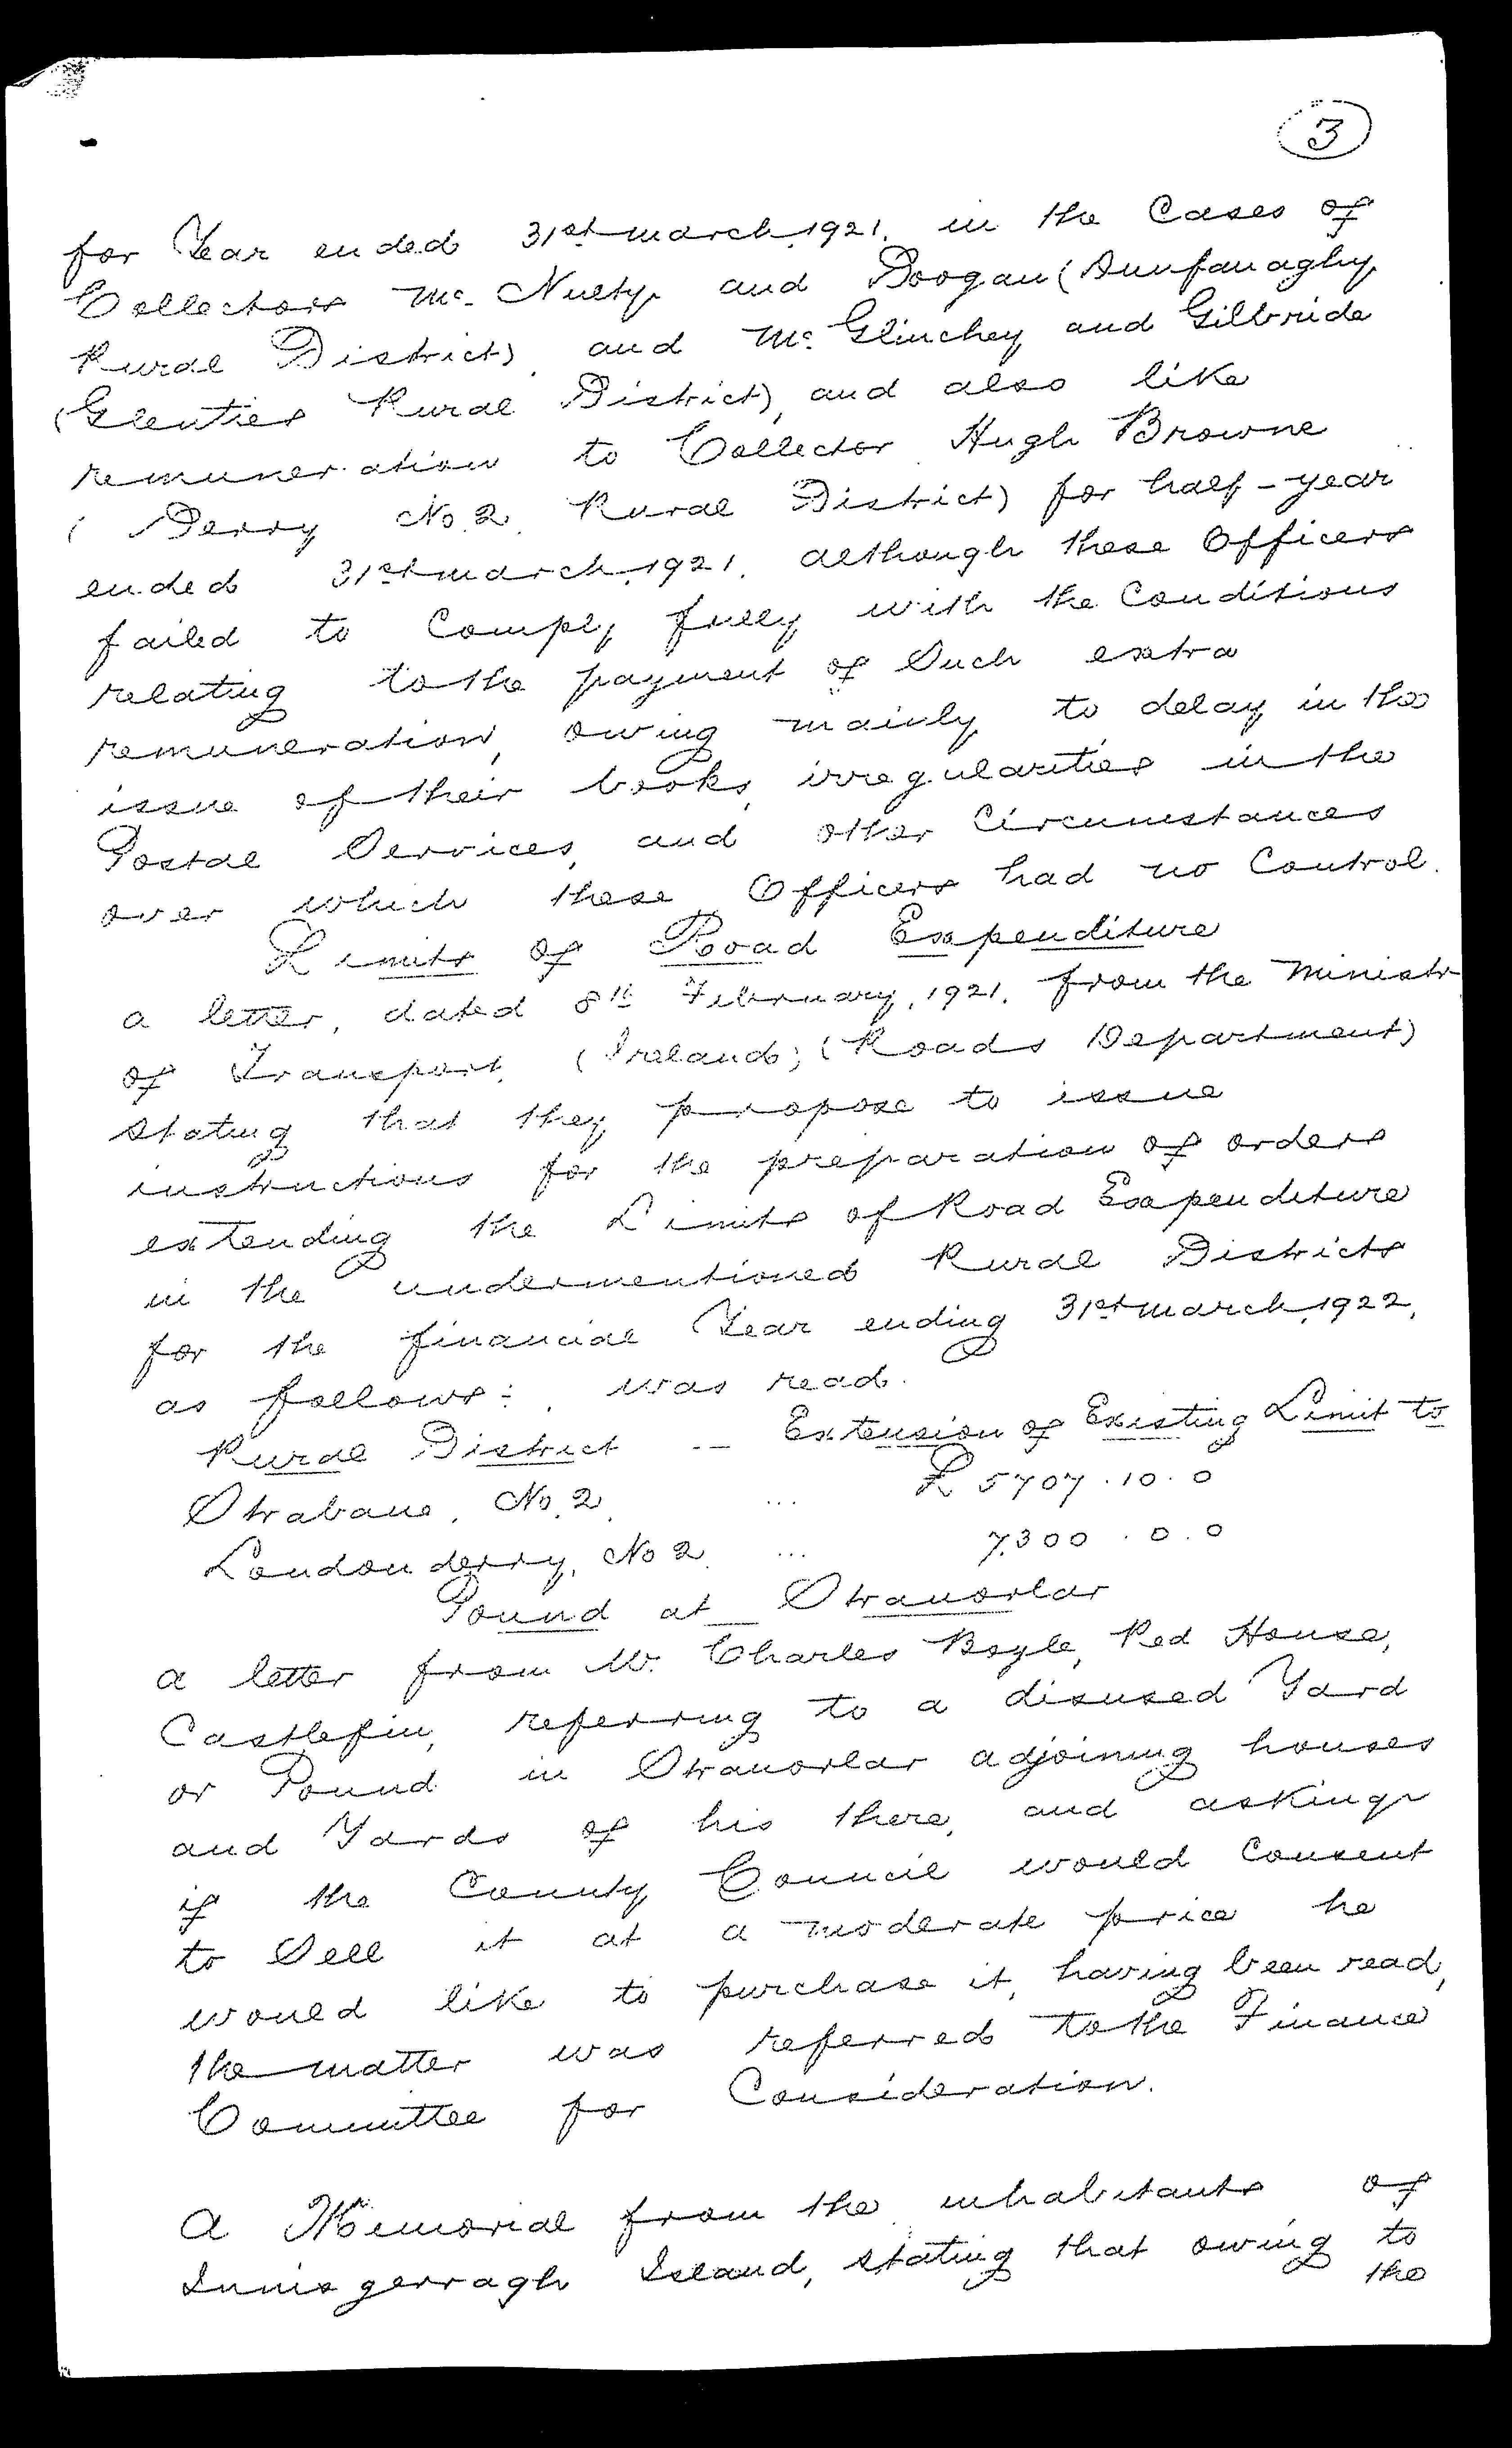 3
for Year ended 31st March, 1921. in the Cases of
Collectors Mc. Nulty and Doogan (Dunfanaghy
Rural District), and Mc. Glinchey and Gilbride
(Glenties Rural District), and also like
remuneration to Collector Hugh Browne
(Derry No. 2. Rural District) for half-year
ended 31st March, 1921. although these Officers
failed to Comply fully with the Conditions
relating to the payment of Such extra
remuneration, owing mainly to delay in the
issue of their books, irregularities in the
Postal Services, and other Circumstances
over which these Officers had no Control.
Limits of Road Expenditure
a letter, dated 8th February, 1921. from the Ministr
of Transport, (Ireland); (Roads Department)
stating that they propose to issue
instructions for the preparation of orders
extending the Limits of Road Expenditure
in the undermentioned Rural Districts
for the financial Year ending 31st March, 1922,
as follows:. was read.
Rural District -- Extension of Existing Limit to
Strabane, No. 2. ... £5707.10.0
Londonderry, No 2. ... 7,300.0.0
Pound at Stranorlar
a letter from Mr. Charles Boyle, Red House,
Castlefin, referring to a disused Yard
or Pound in Stranorlar adjoining houses
and Yards of his there, and asking
if the County Council would Consent
to Sell it at a moderate price he
would like to purchase it, having been read,
the matter was referred to the Finance
Committee for Consideration.
A Memorial from the inhabitants of
Innisgerragh Island, stating that owing to
the